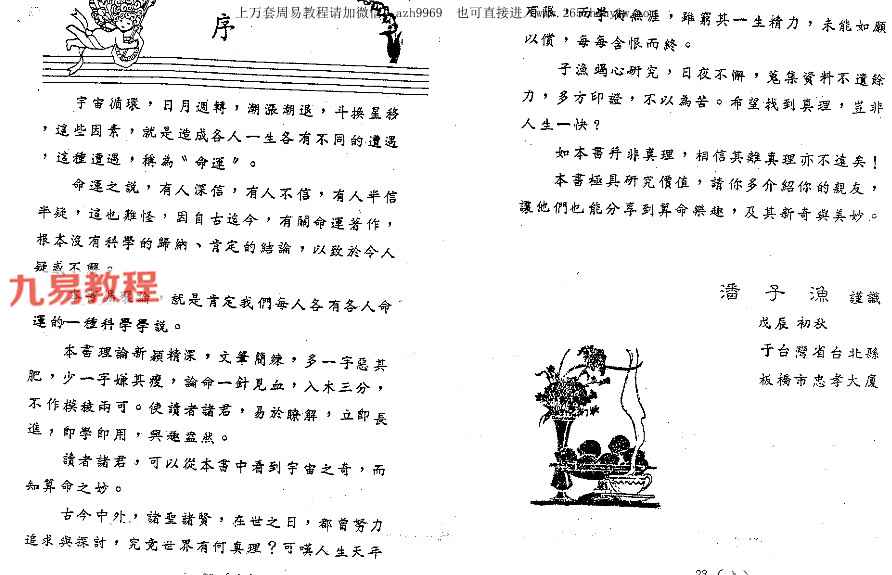 上万套周易教程请加微信：azh9969 也可直接进
序
宇宙循環，日月週轉，潮漲潮退，斗換星移
，這些因素，就是造成各人一生各有不同的遭遇
，這種遭遇，稱為〝命運〞。
命運之說，有人深信，有人不信，有人半信
半疑，這也難怪，因自古迄今，有關命運著作，
根本沒有科學的歸納、肯定的結論，以致於今人
疑惑不解。
九易教程
，就是肯定我們每人各有各人命
運的一種科學學說。
本書理論新穎精深，文筆簡練，多一字惡其
肥，少一字嫌其瘦，論命一針見血，入木三分，
不作模稜兩可。使讀者諸君，易於瞭解，立即長
進，即學即用，興趣盎然。
讀者諸君，可以從本書中看到宇宙之奇，而
知算命之妙。
古今中外，諸聖諸賢，在世之日，都曾努力
追求與探討，究竟世界有何真理？可嘆人生天年
有限，而學術無涯，雖窮其一生精力，未能如願
以償，每每含恨而終。
子漁竭心研究，日夜不懈，蒐集資料不遺餘
力，多方印證，不以為苦。希望找到真理，豈非
人生一快？
如本書并非真理，相信其離真理亦不遠矣！
本書極具研究價值，請你多介紹你的親友，
讓他們也能分享到算命樂趣，及其新奇與美妙。
潘子漁 謹識
戊辰初秋
于台灣省台北縣
板橋市忠孝大廈